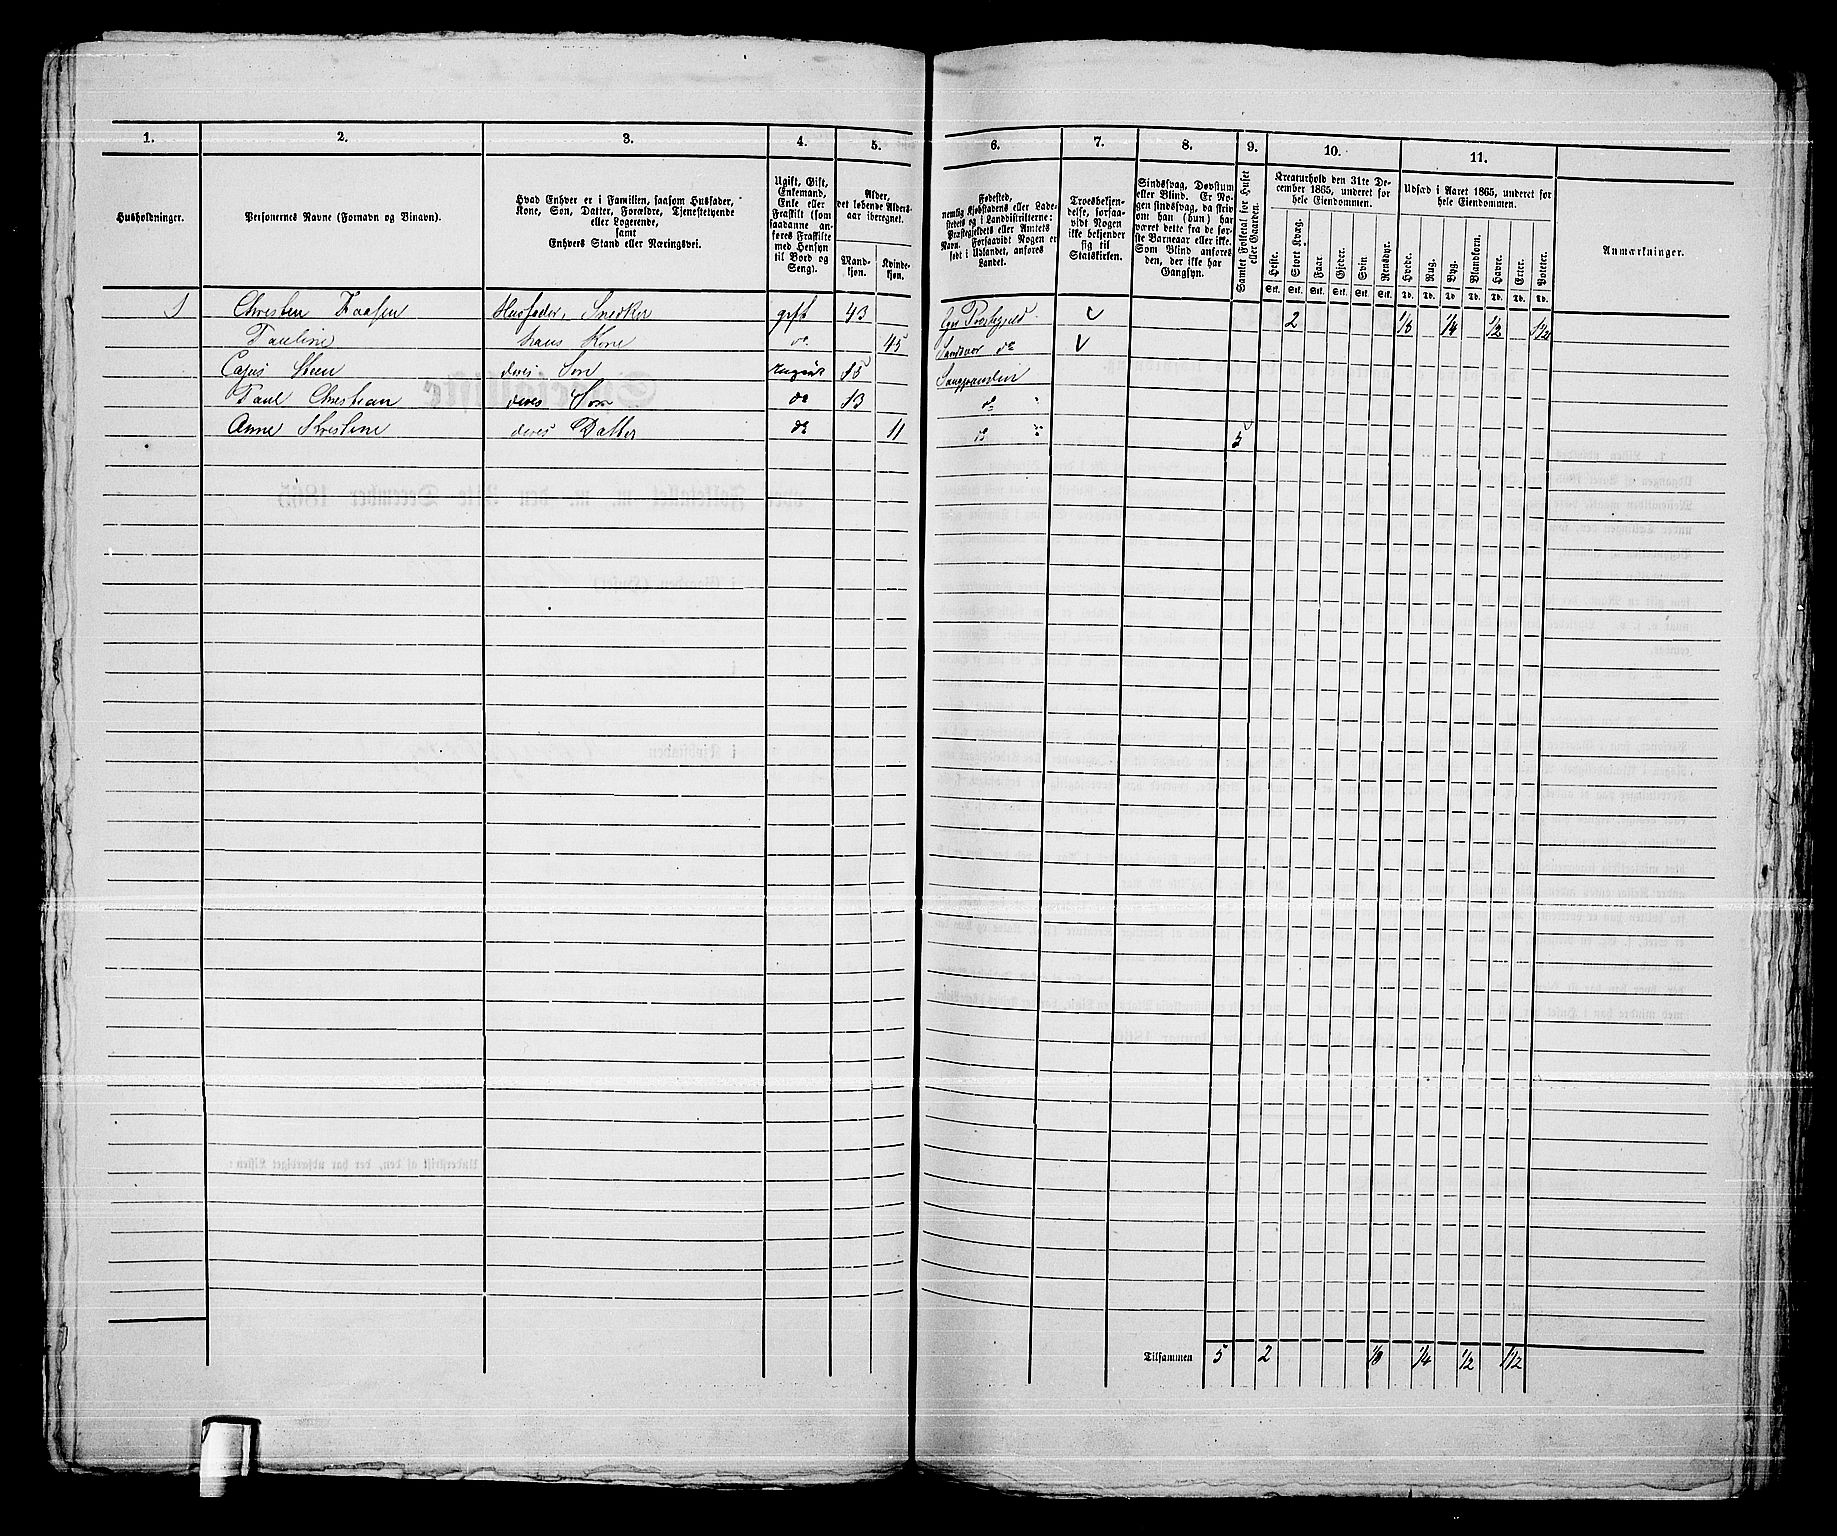 1. 2. 3. 4. 5. 6. 7. 8. 9. 10. 11.
Husholdninger.
Personernes Navne (Fornavn og Binavn).
Hvad Enhver er i Familien, saasom Husfader,
Kone, Søn, Datter, Forældre, Tjenestetyende
eller Logerende,
samt
Enhvers Stand eller Næringsvei.
Ugift, Gift,
Enkemand,
Enke eller
Fraskilt (som
saadanne an-
føres Fraskilte
med Hensyn
til Bord og
Seng).
Alder,
det løbende Alders-
aar iberegnet.
Mand-
kjøn.
Kvinde-
kjøn.
Fødested,
nemlig Kjøbstadens eller Lade-
stedets og i Landdistrikterne:
Præstegjeldets eller Amtets
Navn. Forsaavidt Nogen er
født i Udlandet, anføres
Landet.
Troesbekjen-
delse, forsaa-
vidt Nogen
ikke bekjender
sig til
Statskirken.
Sindssvag, Døvstum
eller Blind. Er No-
gen sindssvag, da skri-
ves om han (hun) har
været det fra de før-
ste Barneaar eller ikke.
Som Blind anføres
den, der ikke har
Gangsyn.
Samlet Folketal for Huset
eller Gaarden.
Kreaturhold den 31te De-
cember 1865, underet for
hele Eiendommen.
Heste. Stort Kvæg. Faar. Gjeder. Sviin. Rensdyr.
Stk. Stk. Stk. Stk. Stk. Stk.
Udsæd i Aaret 1865, underet for
hele Eiendommen.
Hvede. Rug. Byg. Blandkorn. Havre. Erter. Poteter.
Td. Td. Td. Td. Td. Td. Td.
Anmærkninger.
1 Christen Husfader, Snedker gift 43 2 1/8 1/4 1/2 1 1/2
Pauline hans Kone do 45
Steen deres Søn ugivt 15
Paul Christian deres Søn do 13 do "
Anne Kristine deres Datter do 11 do " 5
Tilsammen 5 2 1/8 1/4 1/2 1 1/2